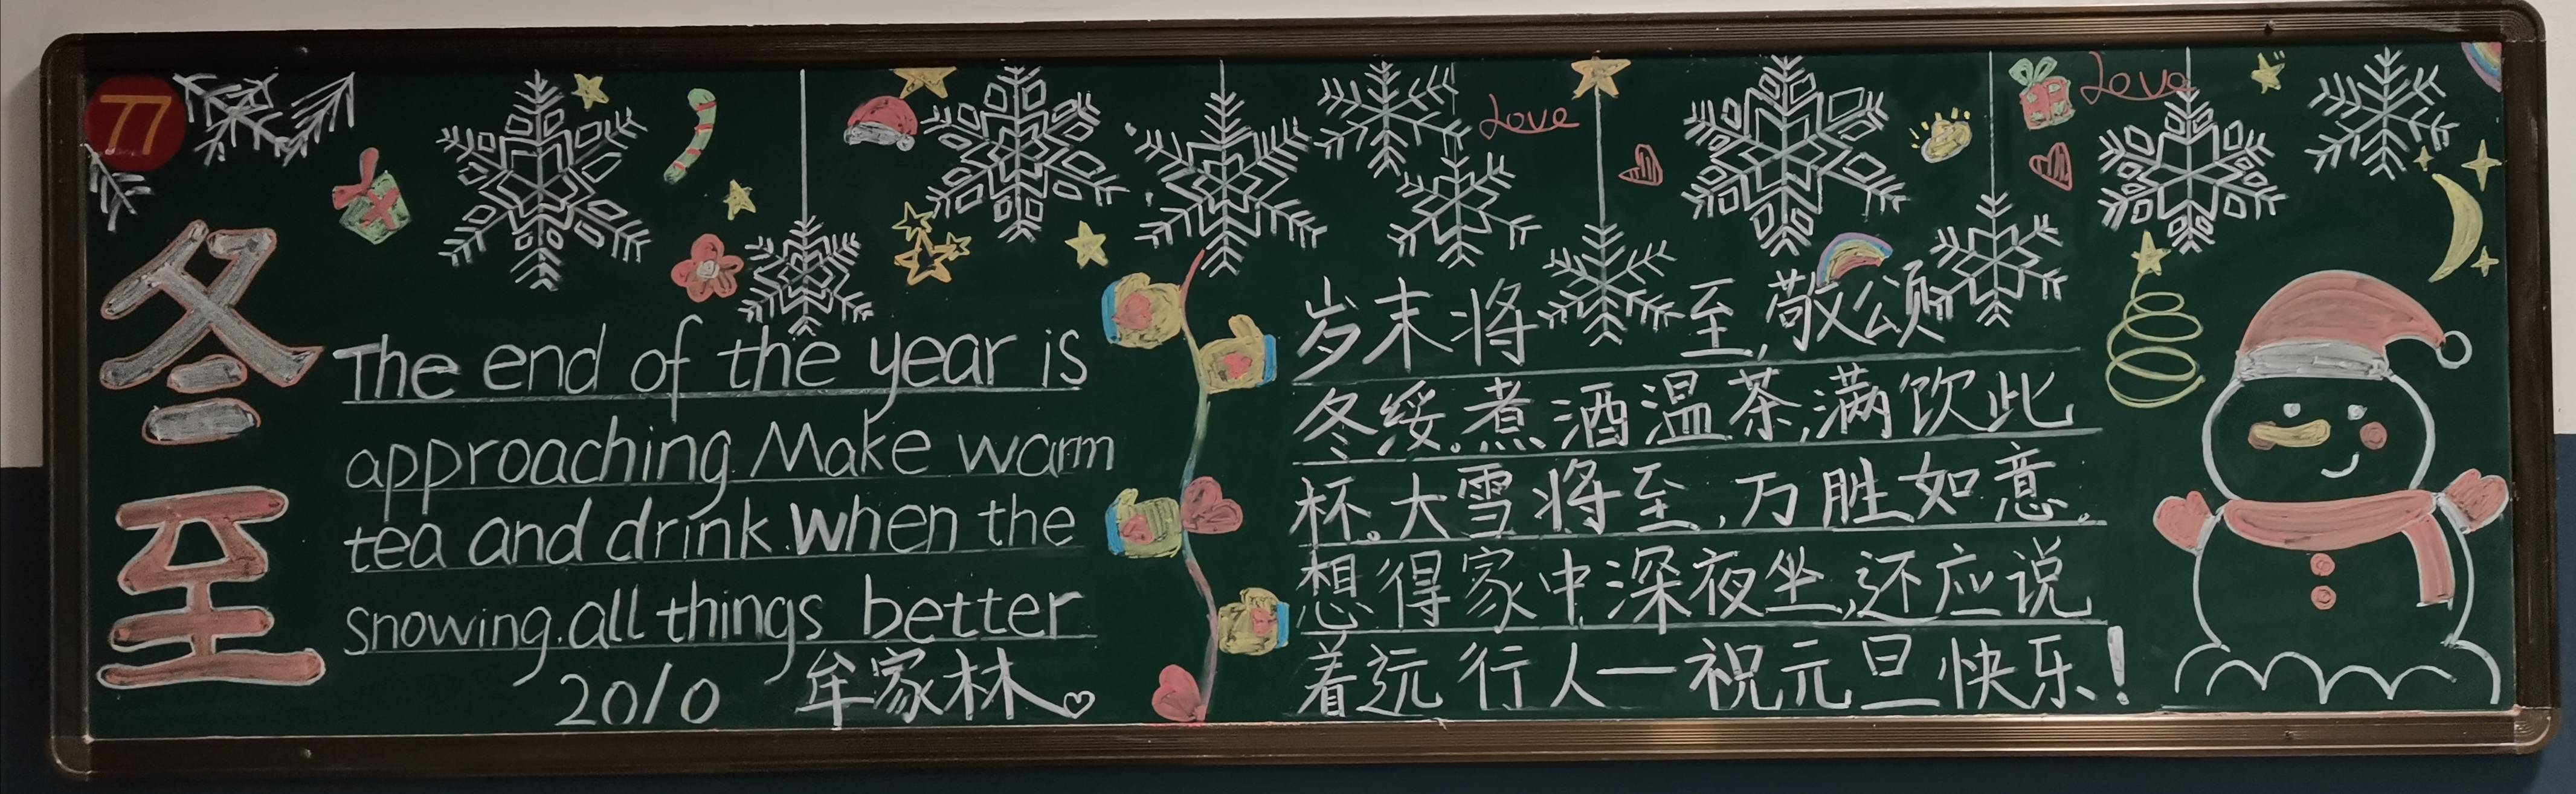 77
Love
Love
冬
至
The end of the year is
approaching.Make warm
tea and drink.When the
snowing.all things better
2010 牟家林
岁末将至,敬颂
冬绥。煮酒温茶,满饮此
杯。大雪将至,万胜如意。
想得家中深夜坐,还应说
着远行人一祝元旦快乐!